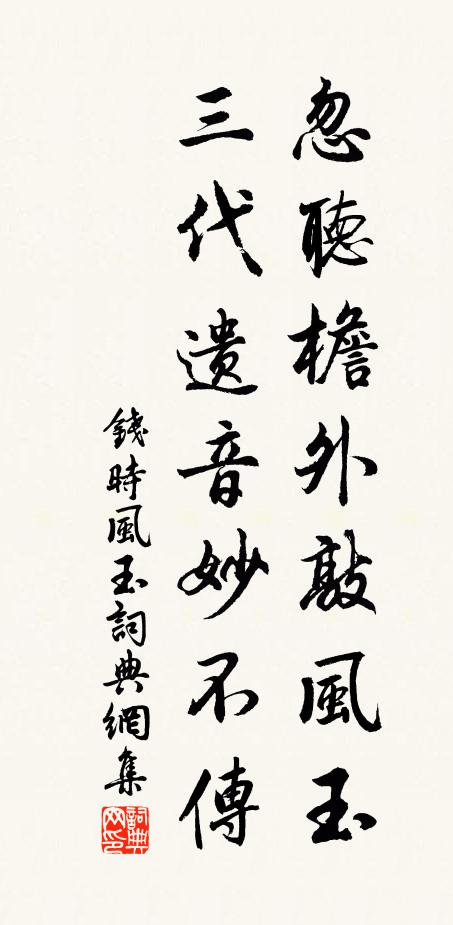 忽聽檐外敲風玉
三代遺音妙不傳
錢時風玉詞典網集
詞典网印